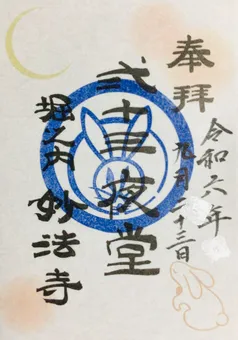 奉拝
令和六年
九月二十三日
弐十三夜堂
堀之内
妙法寺